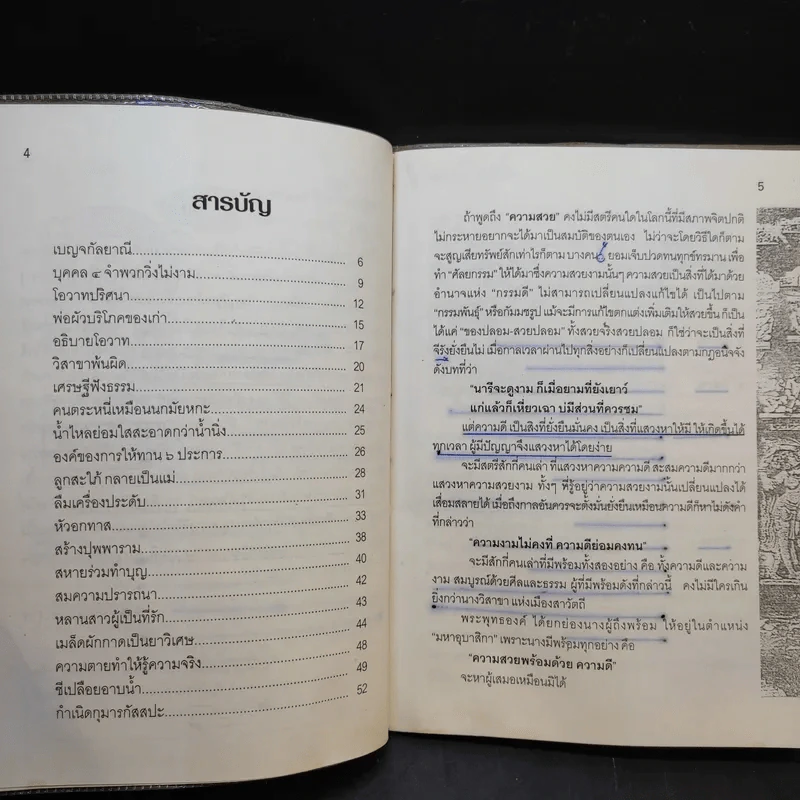 4
สารบัญ
เบญจกัลยาณี 6
บุคคล ๔ จำพวกวิ่งไม่งาม 9
โอวาทปริศนา 12
พ่อผัวบริโภคของเก่า 15
อธิบายโอวาท 17
วิสาขาพ้นผิด 20
เศรษฐีฟังธรรม 21
คนตระหนี่เหมือนนกมัยหกะ 24
น้ำไหลย่อมใสสะอาดกว่าน้ำนิ่ง 25
องค์ของการให้ทาน ๖ ประการ 26
ลูกสะใภ้ กลายเป็นแม่ 28
ลืมเครื่องประดับ 31
หัวอกทาส 33
สร้างปุพพาราม 38
สหายร่วมทำบุญ 40
สมความปรารถนา 42
หลานสาวผู้เป็นที่รัก 43
เมล็ดผักกาดเป็นยาวิเศษ 44
ความตายทำให้รู้ความจริง 48
ชีเปลือยอาบน้ำ 49
กำเนิดกุมารกัสสปะ 52
5
ถ้าพูดถึง “ความสวย” คงไม่มีสตรีคนใดในโลกนี้ที่มีสภาพจิตปกติ
ไม่กระหายอยากจะได้มาเป็นสมบัติของตนเอง ไม่ว่าจะโดยวิธีใดก็ตาม
จะสูญเสียทรัพย์สักเท่าไรก็ตาม บางคนยอมเจ็บปวดทนทุกข์ทรมาน เพื่อ
ทำ “ศัลยกรรม” ให้ได้มาซึ่งความสวยงามนั้นๆ ความสวยเป็นสิ่งที่ได้มาด้วย
อำนาจแห่ง “กรรมดี” ไม่สามารถเปลี่ยนแปลงแก้ไขได้ เป็นไปตาม
“กรรมพันธุ์” หรือกัมมชรูป แม้จะมีการแก้ไขตกแต่งเพิ่มเติมให้สวยขึ้น ก็เป็น
ได้แค่ “ของปลอม-สวยปลอม” ทั้งสวยจริงสวยปลอม ก็ใช่ว่าจะเป็นสิ่งที่
จีรังยั่งยืนไม่ เมื่อกาลเวลาผ่านไปทุกสิ่งอย่างก็เปลี่ยนแปลงตามกฎอนิจจัง
ดังบทที่ว่า
“นารีจะดูงาม ก็เมื่อยามที่ยังเยาว์
แก่แล้วก็เหี่ยวเฉา บ่มีส่วนที่ควรชม”
แต่ความดี เป็นสิ่งที่ยั่งยืนมั่นคง เป็นสิ่งที่แสวงหาให้มี ให้เกิดขึ้นได้
ทุกเวลา ผู้มีปัญญาจึงแสวงหาได้โดยง่าย
จะมีสตรีสักกี่คนเล่า ที่แสวงหาความความดี สะสมความดีมากกว่า
แสวงหาความสวยงาม ทั้งๆ ที่รู้อยู่ว่าความสวยงามนั้นเปลี่ยนแปลงได้
เสื่อมสลายได้ เมื่อถึงกาลอันควรจะตั้งมั่นยั่งยืนเหมือนความดีก็หาไม่ดังคำ
ที่กล่าวว่า
“ความงามไม่คงที่ ความดีย่อมคงทน”
จะมีสักกี่คนเล่าที่มีพร้อมทั้งสองอย่าง คือ ทั้งความดีและความ
งาม สมบูรณ์ด้วยศีลและธรรม ผู้ที่มีพร้อมดังที่กล่าวนี้ คงไม่มีใครเกิน
ยิ่งกว่านางวิสาขา แห่งเมืองสาวัตถี
พระพุทธองค์ ได้ยกย่องนางผู้ถึงพร้อม ให้อยู่ในตำแหน่ง
“มหาอุบาสิกา” เพราะนางมีพร้อมทุกอย่าง คือ
“ความสวยพร้อมด้วย ความดี”
จะหาผู้เสมอเหมือนมิได้